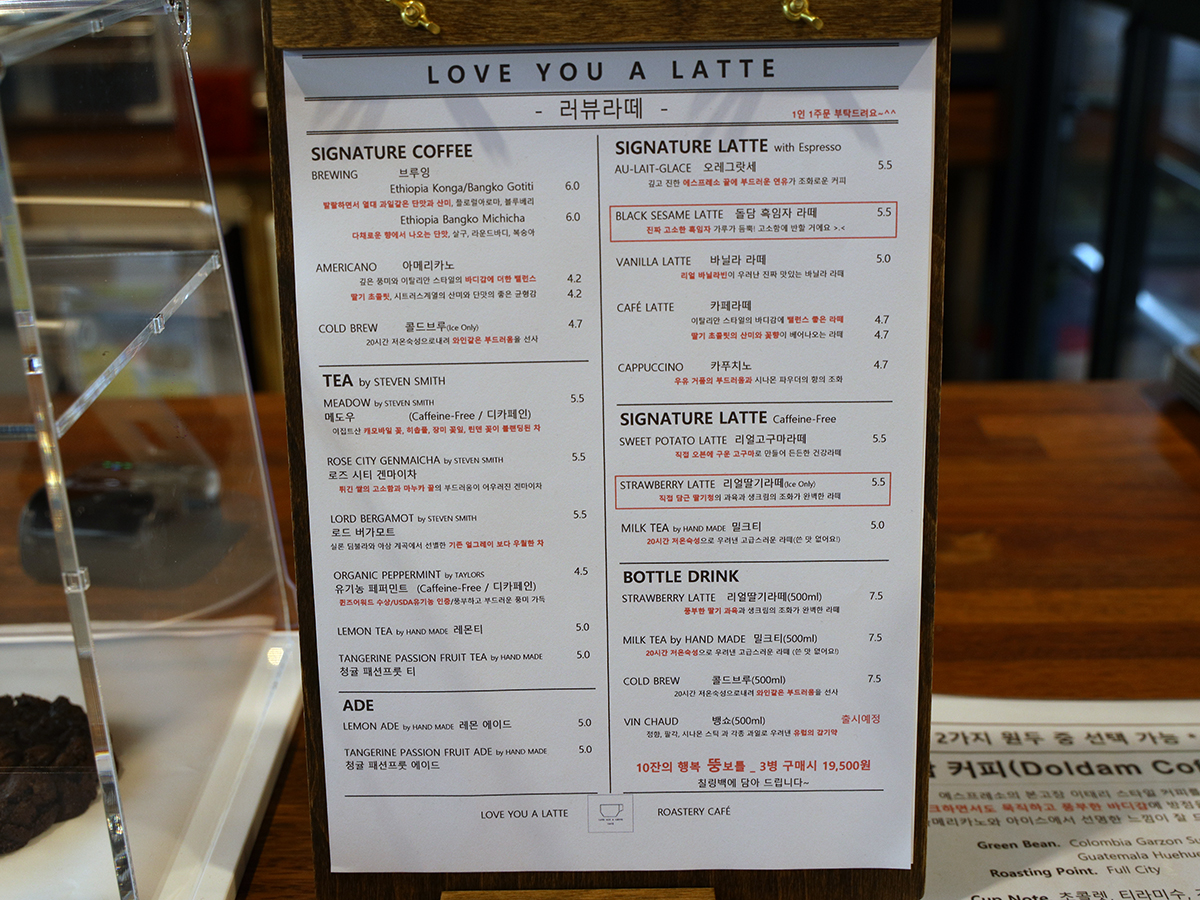 LOVE YOU A LATTE
- 러뷰라떼 -
1인 1주문 부탁드려요~^^
SIGNATURE COFFEE
BREWING 브루잉
Ethiopia Konga/Bangko Gotiti 6.0
발랄하면서 열대 과일같은 단맛과 산미, 플로럴아로마, 블루베리
Ethiopia Bangko Michicha 6.0
다채로운 향에서 나오는 단맛, 살구, 라운드바디, 복숭아
AMERICANO 아메리카노
깊은 풍미와 이탈리안 스타일의 바디감에 더한 밸런스 4.2
딸기 초콜릿, 시트러스계열의 산미와 단맛의 좋은 균형감 4.2
COLD BREW 콜드브루(Ice Only) 4.7
20시간 저온숙성으로내려 와인같은 부드러움을 선사
TEA by STEVEN SMITH
MEADOW by STEVEN SMITH 5.5
메도우 (Caffeine-Free / 디카페인)
이집트산 캐모바일 꽃, 히솝풀, 장미 꽃잎, 린덴 꽃이 블렌딩된 차
ROSE CITY GENMAICHA by STEVEN SMITH 5.5
로즈 시티 겐마이차
튀긴 쌀의 고소함과 마누카 꿀의 부드러움이 어우러진 겐마이차
LORD BERGAMOT by STEVEN SMITH 5.5
로드 버가모트
실론 딤불라와 아삼 계곡에서 선별한 기존 얼그레이 보다 우월한 차
ORGANIC PEPPERMINT by TAYLORS 4.5
유기농 페퍼민트 (Caffeine-Free / 디카페인)
퀸즈어워드 수상/USDA유기농 인증/풍부하고 부드러운 풍미 가득
LEMON TEA by HAND MADE 레몬티 5.0
TANGERINE PASSION FRUIT TEA by HAND MADE 5.0
청귤 패션프룻 티
ADE
LEMON ADE by HAND MADE 레몬 에이드 5.0
TANGERINE PASSION FRUIT ADE by HAND MADE 5.0
청귤 패션프룻 에이드
SIGNATURE LATTE with Espresso
AU-LAIT-GLACE 오레그랏세 5.5
깊고 진한 에스프레소 끝에 부드러운 연유가 조화로운 커피
BLACK SESAME LATTE 돌담 흑임자 라떼 5.5
진짜 고소한 흑임자 가루가 듬뿍! 고소함에 반할 거에요 >.<
VANILLA LATTE 바닐라 라떼 5.0
리얼 바닐라빈이 우러난 진짜 맛있는 바닐라 라떼
CAFÉ LATTE 카페라떼
이탈리안 스타일의 바디감에 밸런스 좋은 라떼 4.7
딸기 초콜릿의 산미와 꽃향이 베어나오는 라떼 4.7
CAPPUCCINO 카푸치노 4.7
우유 거품의 부드러움과 시나몬 파우더의 향의 조화
SIGNATURE LATTE Caffeine-Free
SWEET POTATO LATTE 리얼고구마라떼 5.5
직접 오븐에 구운 고구마로 만들어 든든한 건강라떼
STRAWBERRY LATTE 리얼딸기라떼(Ice Only) 5.5
직접 담근 딸기청의 과육과 생크림의 조화가 완벽한 라떼
MILK TEA by HAND MADE 밀크티 5.0
20시간 저온숙성으로 우려낸 고급스러운 라떼(쓴 맛 없어요!)
BOTTLE DRINK
STRAWBERRY LATTE 리얼딸기라떼(500ml) 7.5
풍부한 딸기 과육과 생크림의 조화가 완벽한 라떼
MILK TEA by HAND MADE 밀크티(500ml) 7.5
20시간 저온숙성으로 우려낸 고급스러운 라떼 (쓴 맛 없어요!)
COLD BREW 콜드브루(500ml) 7.5
20시간 저온숙성으로내려 와인같은 부드러움을 선사
VIN CHAUD 뱅쇼(500ml) 출시예정
정향, 팔각, 시나몬 스틱 과 각종 과일로 우려낸 유럽의 감기약
10잔의 행복 뚱보틀 _ 3병 구매시 19,500원
칠링백에 담아 드립니다~
LOVE YOU A LATTE ROASTERY CAFÉ
2가지 원두 중 선택 가능 *
커피(Doldam Cof
에스프레소의 본고장 이태리 스타일 커피를
크하면서도 묵직하고 풍부한 바디감에 방점을
메리카노와 아이스에서 선명한 느낌이 잘 드
Green Bean. Colombia Garzon Su
Guatemala Huehue
Roasting Point. Full City
Cup Note. 초콜렛, 티라미수,